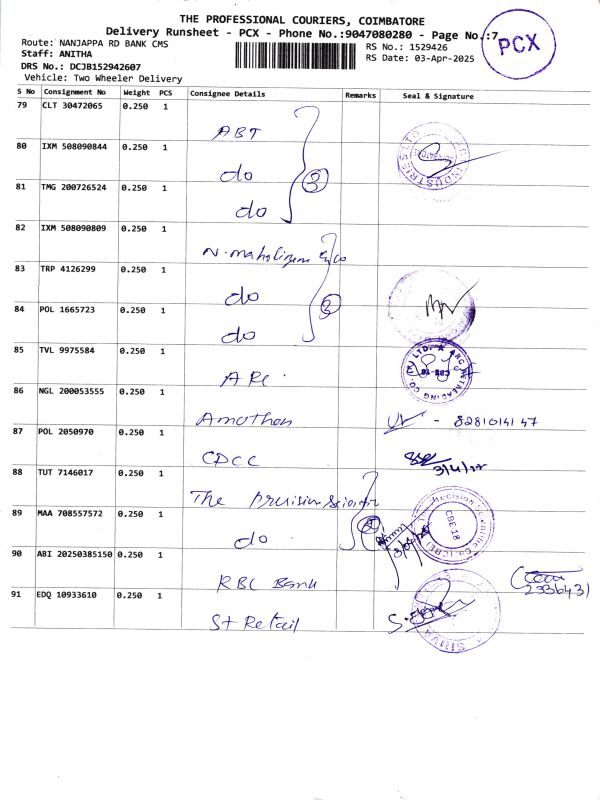 THE PROFESSIONAL COURIERS, COIMBATORE
Delivery Runsheet - PCX - Phone No.:9047080280 - Page No.:7
PCX
Route: NANJAPPA RD BANK CMS
RS No.: 1529426
Staff: ANITHA
RS Date: 03-Apr-2025
DRS No.: DCJB152942607
Vehicle: Two Wheeler Delivery
S No Consignment No Weight PCS Consignee Details Remarks Seal & Signature
79 CLT 30472065 0.250 1
ABT
80 IXM 508090844 0.250 1
do
81 TMG 200726524 0.250 1
do
3
INDUSTRIES LTD
82 IXM 508090809 0.250 1
83 TRP 4126299 0.250 1
do
84 POL 1665723 0.250 1
do
85 TVL 9975584 0.250 1
ARC
ARC RETREADING CO. (P) LTD.
86 NGL 200053555 0.250 1
87 POL 2050970 0.250 1
CDCC
88 TUT 7146017 0.250 1
The
89 MAA 708557572 0.250 1
do
Precision Scientific Co. (CBE)
CBE 18
90 ABI 20250385150 0.250 1
RBL Bank
91 EDQ 10933610 0.250 1
St Retail